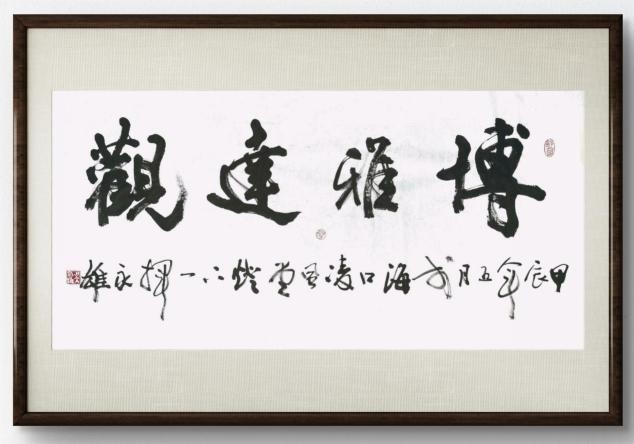 博雅達觀
甲辰年五月於海口凌雲堂燈下一揮永雄